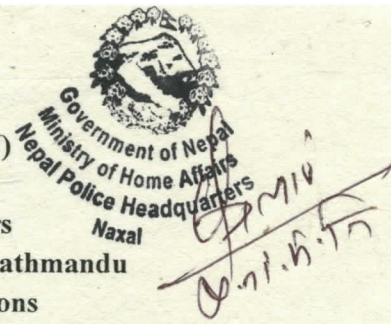 Government of Nepal
Ministry of Home Affairs
Nepal Police Headquarters
Naxal
)
rs
athmandu
ons